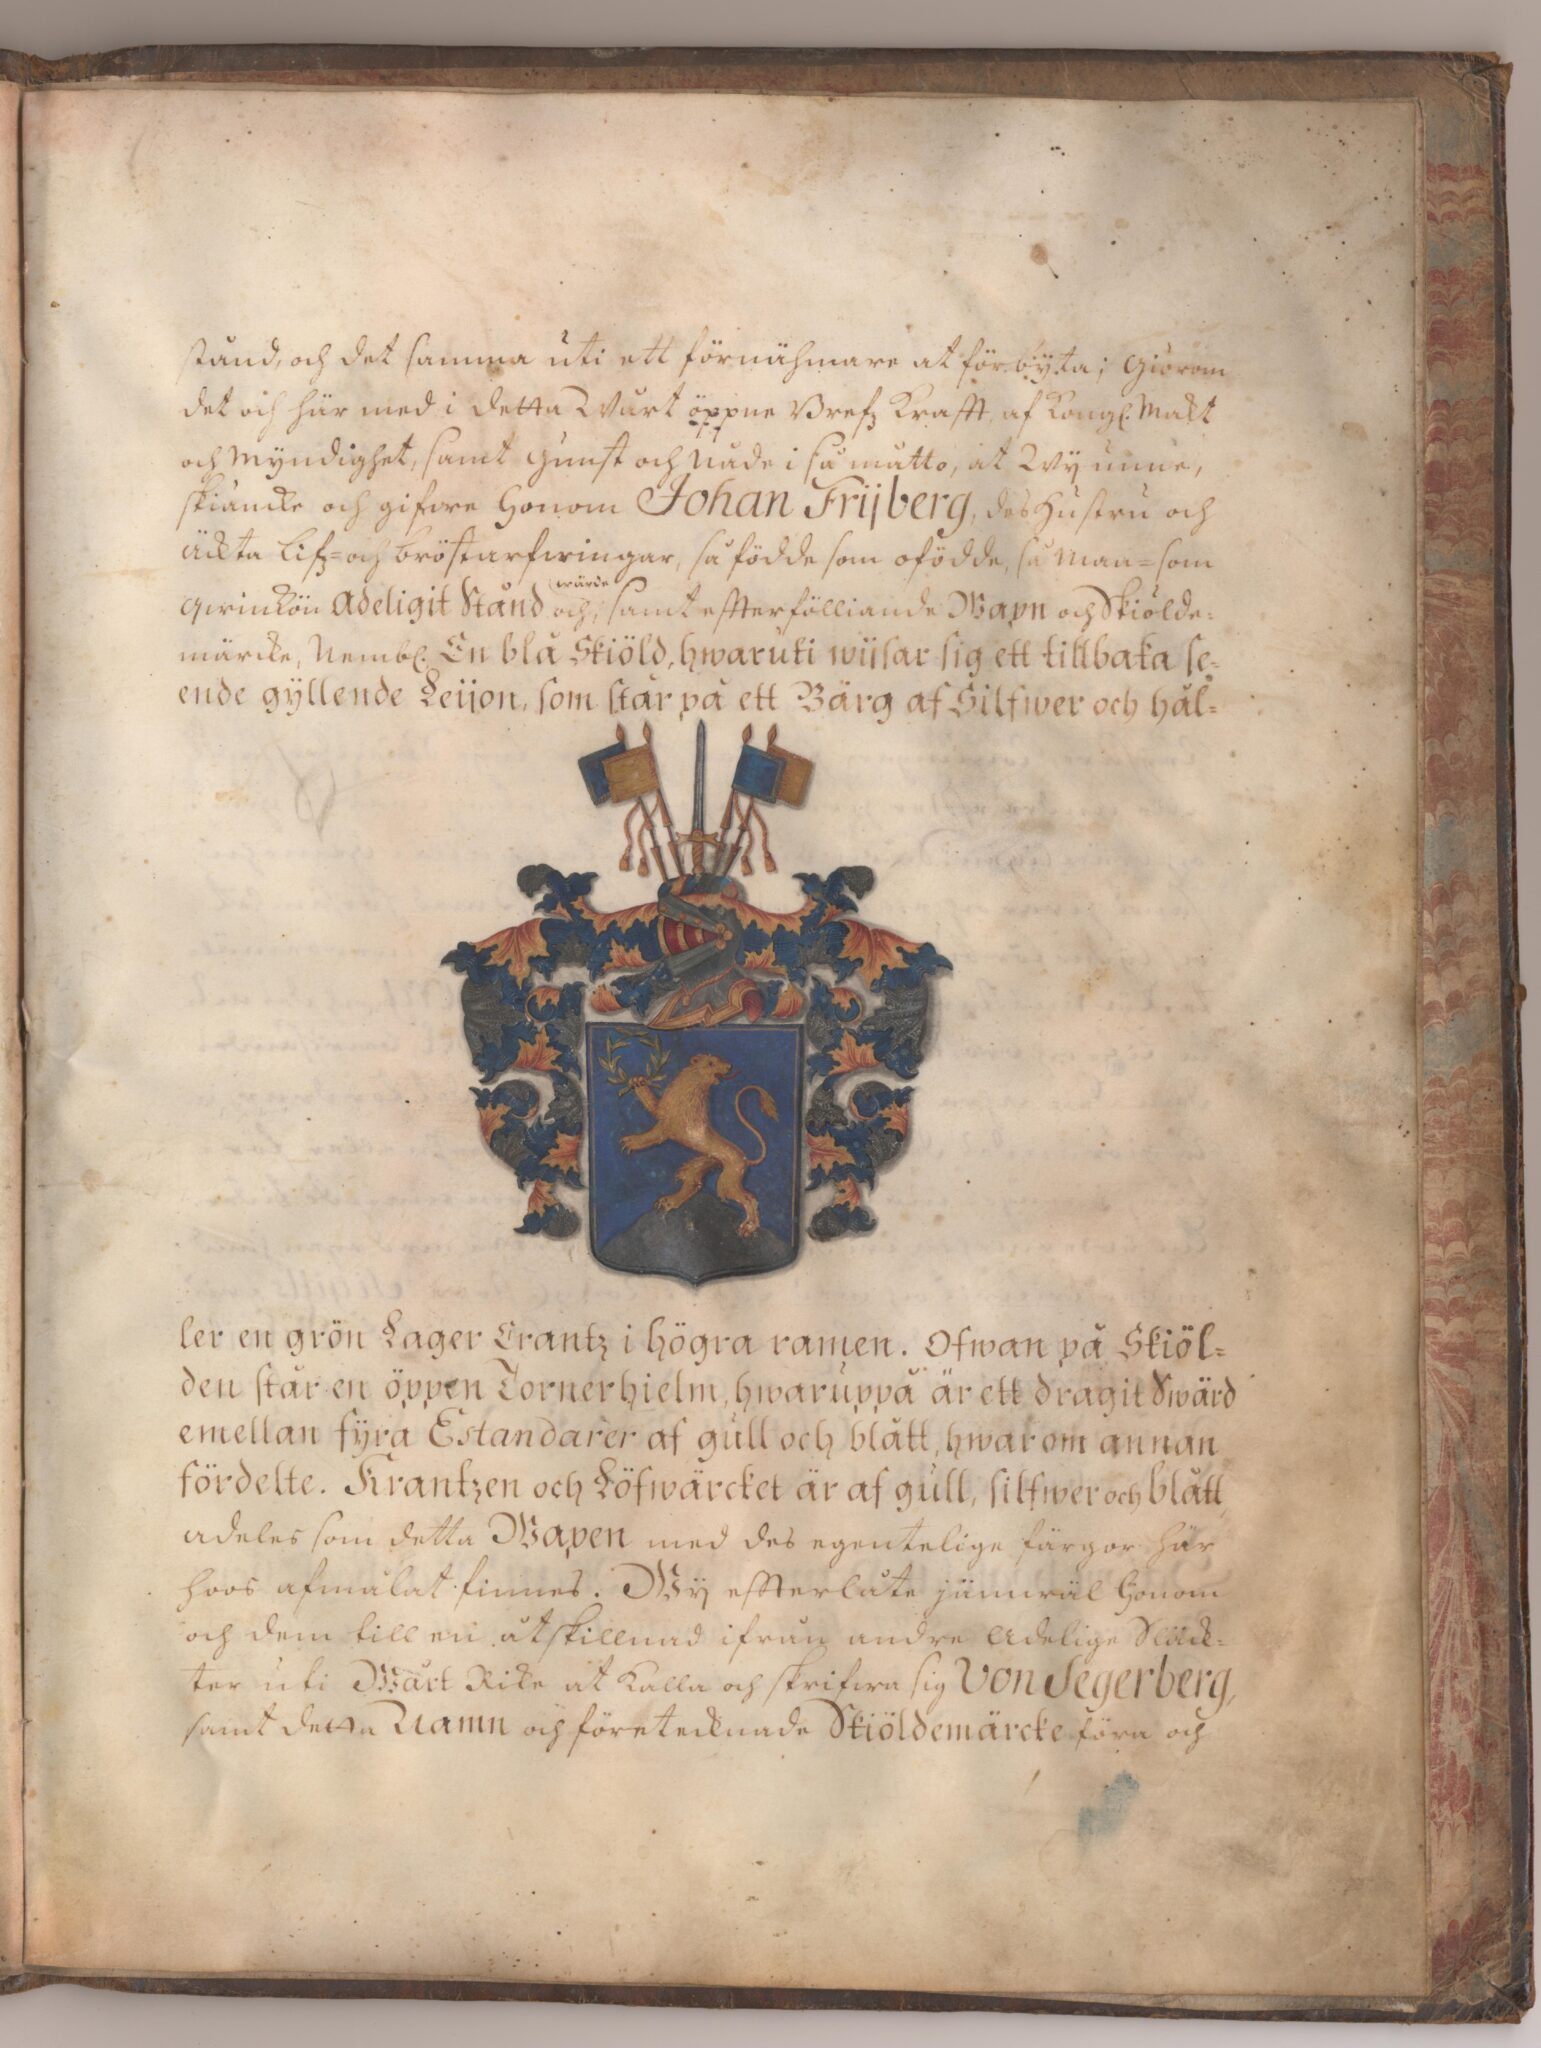 stånd, och det samma uti ett förnähmare at förbÿta; Giörom
det och här med i detta Wårt öppne Brefz Krafft, af Kongl. Makt
och Mÿndighet, samt Gunst och Nåde i så måtto, at Wÿ unne,
skiäncke och gifwe Honom Johan Frijberg, des Hustru och
ächta Lifz= och bröstarfwingar, så födde som ofödde, så Man= som
Qwinkön Adeligit Stånd och wärde, samt effterfölliande Wapn och Skiölde=
märcke, Nembl. En blå Skiöld, hwaruti wijsar sig ett tillbaka se=
ende gÿllende Leijon, som står på ett Bärg af Silfwer och hål=
ler en grön Lager Crantz i högra ramen. Ofwan på Skiöl=
den står en öppen Tornerhielm, hwaruppå är ett dragit Swärd
emellan fÿra Estandarer af gull och blått, hwar om annan
fördelte. Krantzen och Löfwärcket är af gull, silfwer och blått,
adeles som detta Wapen med des egentelige färgor här
hoos afmålat finnes. Wÿ effterlåte jämwäl Honom
och dem till en åtskillnad ifrån andre Adelige Släck=
ter uti Wårt Rike at Kalla och skrifwa sig Von Segerberg,
samt detta Namn och företecknade Skiöldemärcke föra och